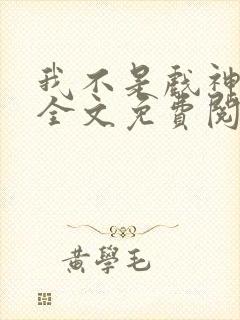 我不是戲神
全文免費閱
黃學毛